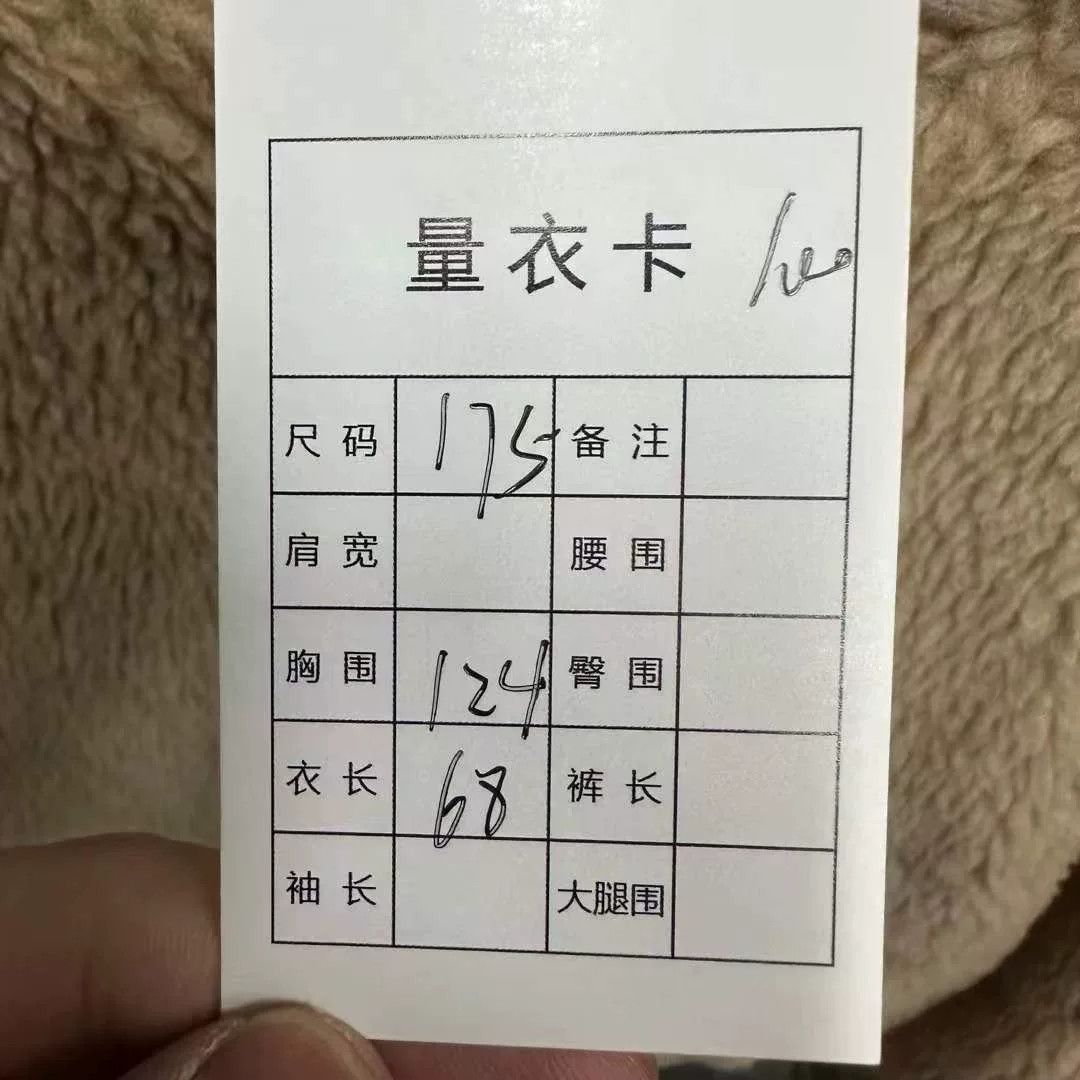 量衣卡
尺码 175 备注
肩宽 腰围
胸围 124 臀围
衣长 68 裤长
袖长 大腿围